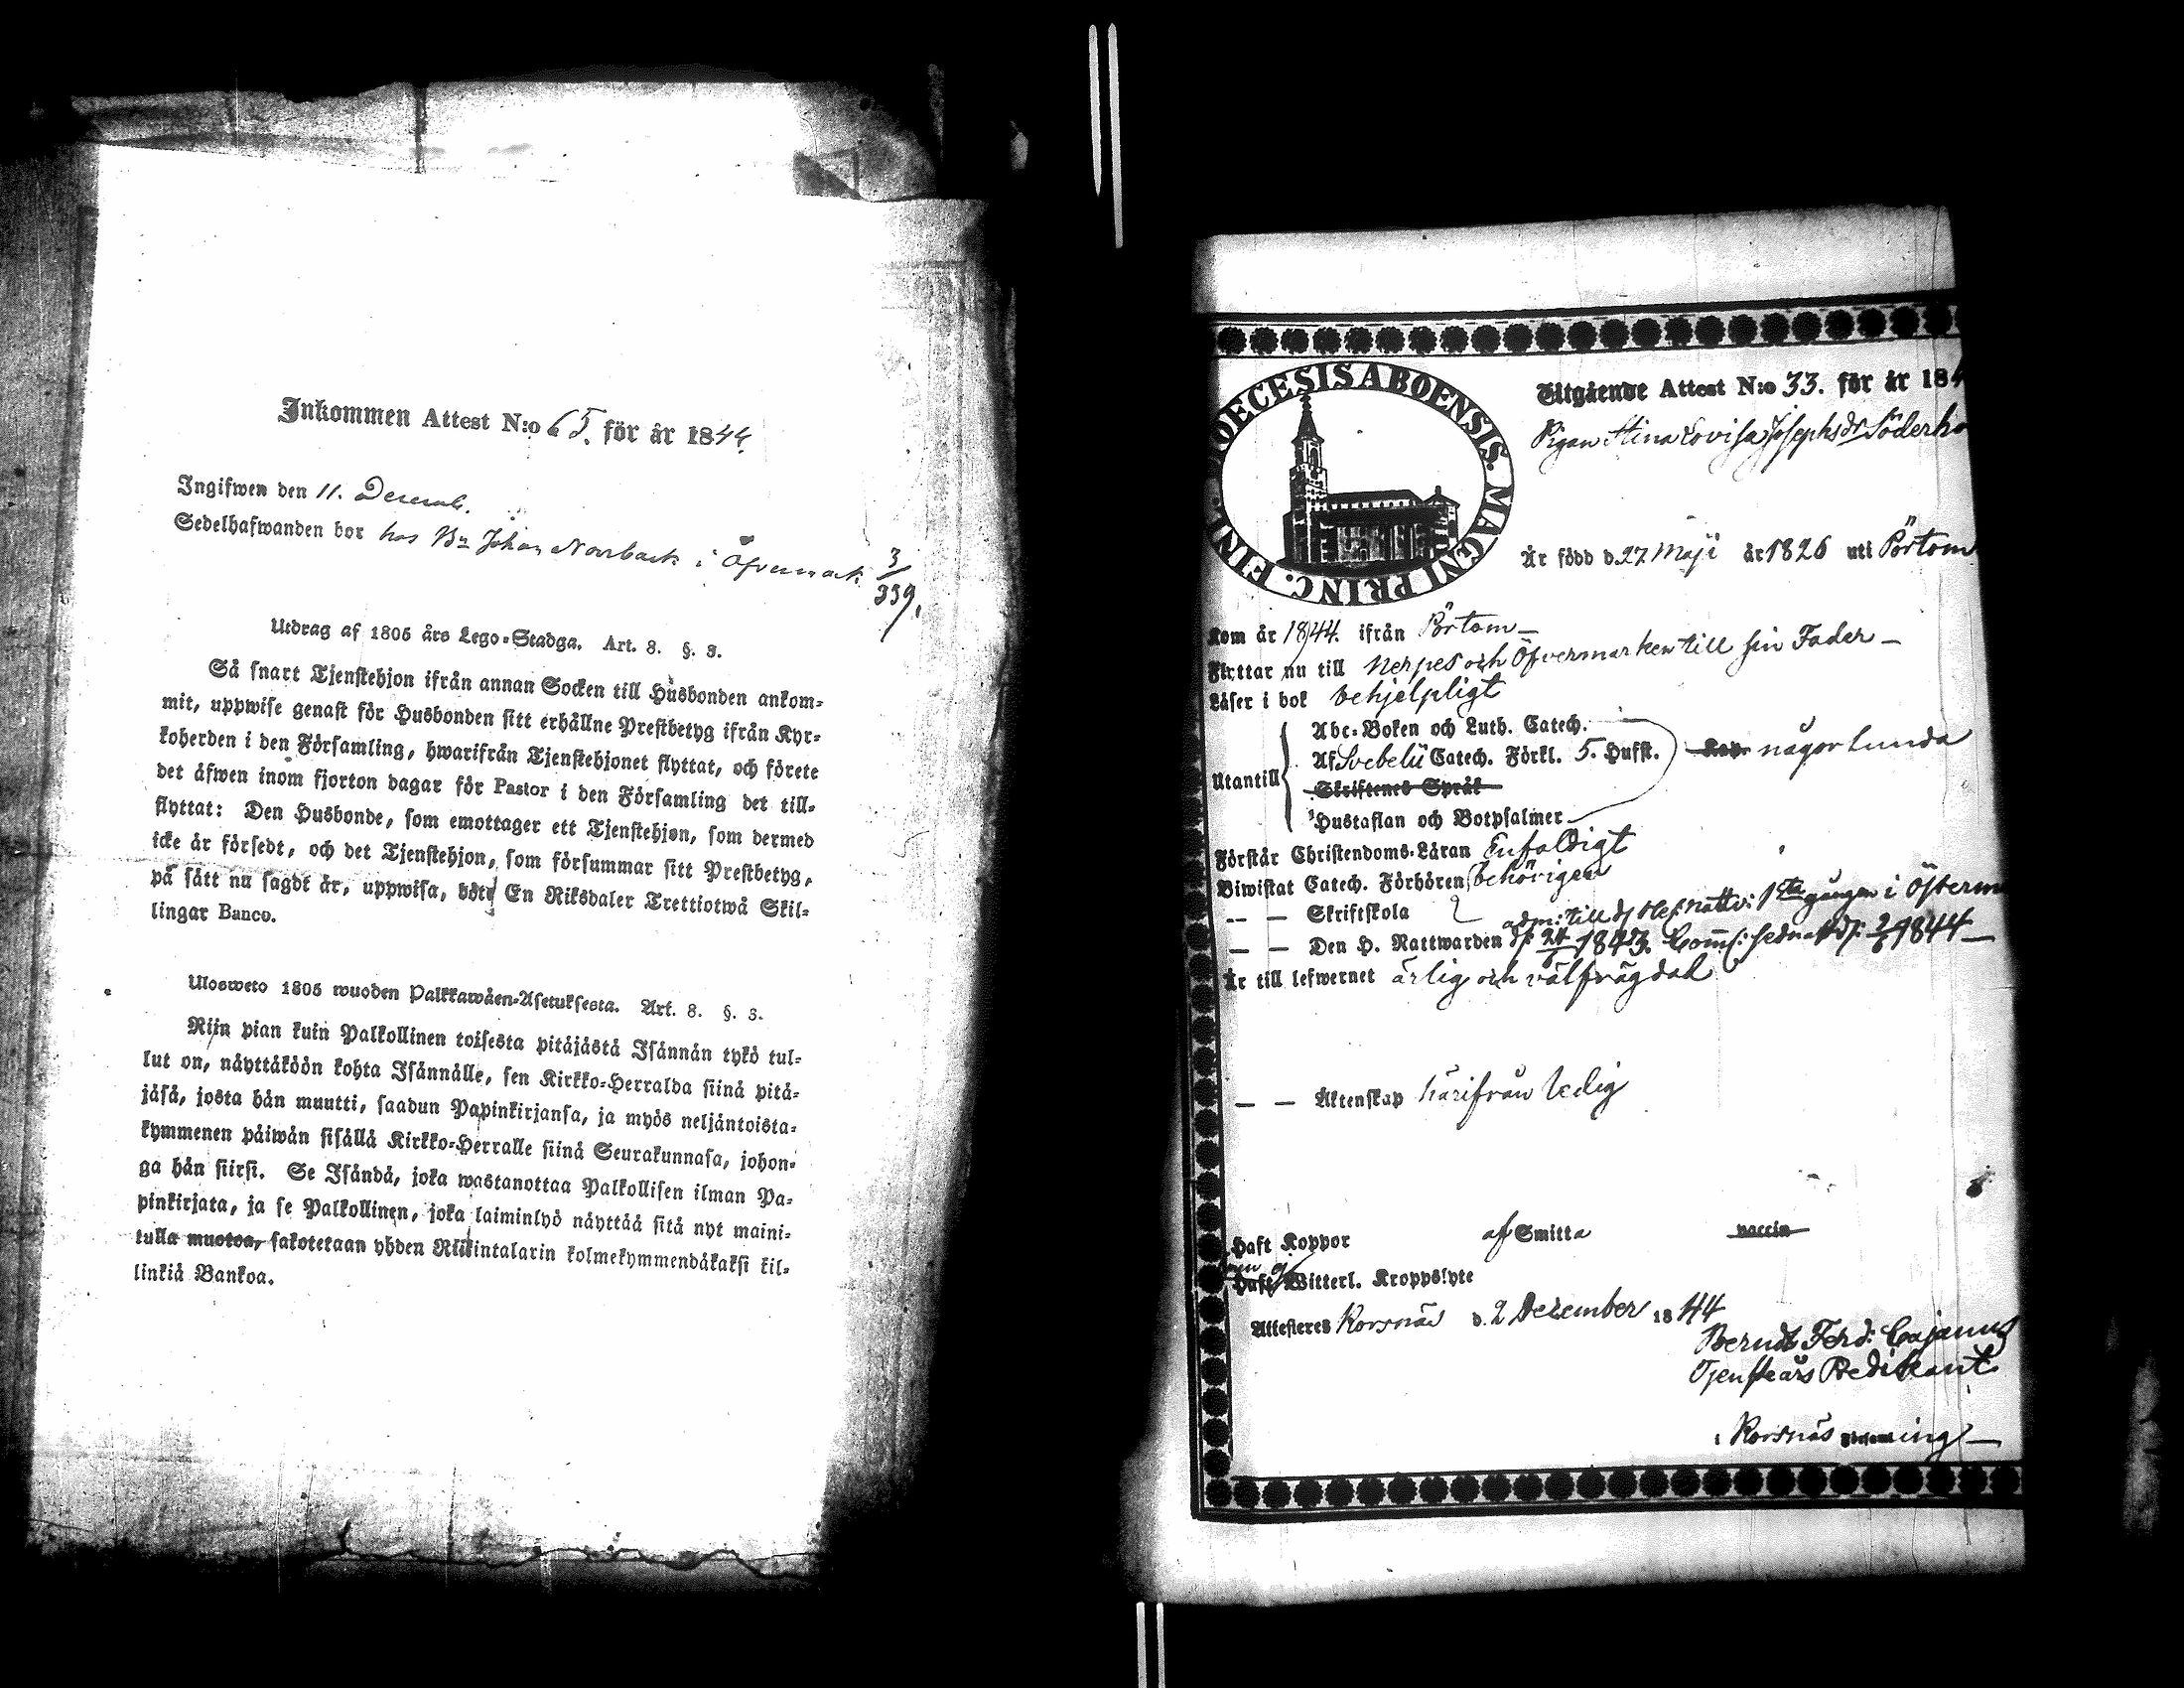 Inkommen Attest N:o 65. för år 1844.
Ingifwen den 11. Decemb.
Sedelhafwanden bor hos Bn Johan Norrback i Öfvermark 3/339.
Utdrag af 1805 års Lego-Stadga. Art. 8. §. 3.
Så snart Tjenstehjon ifrån annan Socken till Husbonden ankom-
mit, uppwise genast för Husbonden sitt erhållne Prestbetyg ifrån Kyr-
koherden i den Församling, hwarifrån Tjenstehjonet flyttat, och förete
det äfwen inom fjorton dagar för Pastor i den Församling det till-
flyttat: Den Husbonde, som emottager ett Tjenstehjon, som dermed
icke är försedt, och det Tjenstehjon, som försummar sitt Prestbetyg,
på sätt nu sagdt är, uppwisa, böte En Riksdaler Trettiotwå Skil-
lingar Banco.
Ulosweto 1805 wuoden Palkkawäen-Asetuksesta. Art. 8. §. 3.
Niin pian kuin Palkollinen toisesta pitäjästä Isännän tykö tul-
lut on, näyttäköön kohta Isännälle, sen Kirkko-Herralda siinä pitä-
jäsä, josta hän muutti, saadun Papinkirjansa, ja myös neljäntoista-
kymmenen päiwän sisällä Kirkko-Herralle siinä Seurakunnasa, johon-
ga hän siirsi. Se Isändä, joka wastanottaa Palkollisen ilman Pa-
pinkirjata, ja se Palkollinen, joka laiminlyö näyttää sitä nyt maini-
tulla muotoa, sakotetaan yhden Riikintalarin kolmekymmendäkaksi kil-
linkiä Bankoa.
DIOECESIS ABOENSIS. MAGNI PRINC. FINL.
Utgående Attest N:o 33. för år 184
Pigan Stina Lovisa Josephsdr Söderho
Är född d. 27 Maji år 1826 uti Pörtom
Kom år 1844. ifrån Pörtom
Flyttar nu till Nerpes och Öfvermarken till sin Fader
Läser i bok behjelpligt
Utantill
Abc-Boken och Luth. Catech.
Af Svebelii Catech. Förkl. 5. Hufst. någorlunda
Skriftenes Språk
Hustaflan och Botpsalmer
Förstår Christendoms-Läran Enfaldigt
Biwistat Catech. Förhören behörigen
— — Skriftskola
adm: till d. H. Nattv: 1sta gången i Öfverm
— — Den H. Nattwarden d. 24/6 1843. Comm: sednast d: 2/6 1844
Är till lefwernet ärlig och välfrägdad
— — Äktenskap härifrån ledig
Haft Koppor af Smitta vaccin
Haft Witterl. Kroppslyte
Attesteres Korsnäs d. 2 December 1844
Berndt Ferd: Cajanus
Tjensteårs Predikant
i Korsnäs Församling